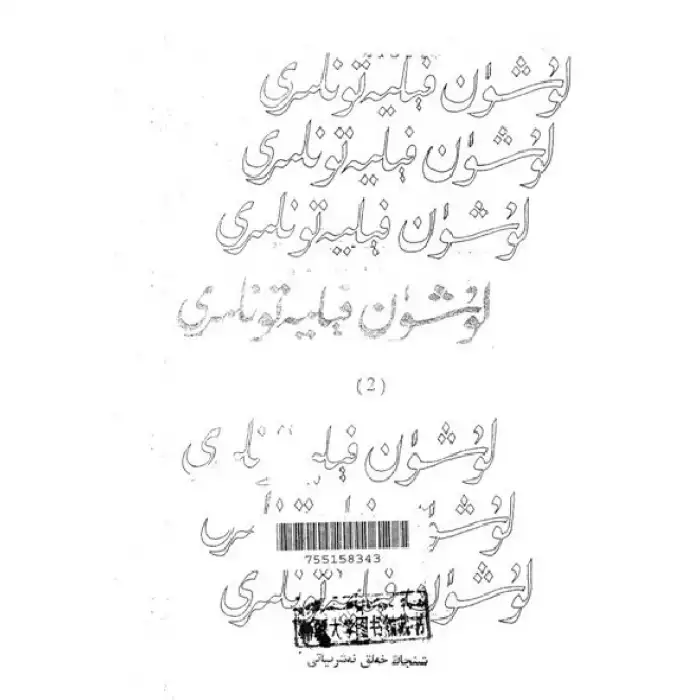 لۇشۈن فېليەتونلىرى
لۇشۈن فېليەتونلىرى
لۇشۈن فېليەتونلىرى
لۇشۈن فېليەتونلىرى
(2)
لۇشۈن
لۇشۈن
755158343
لۇشۈن فېليەتونلىرى
大学图书
شىنجاڭ خەلق نەشرىياتى